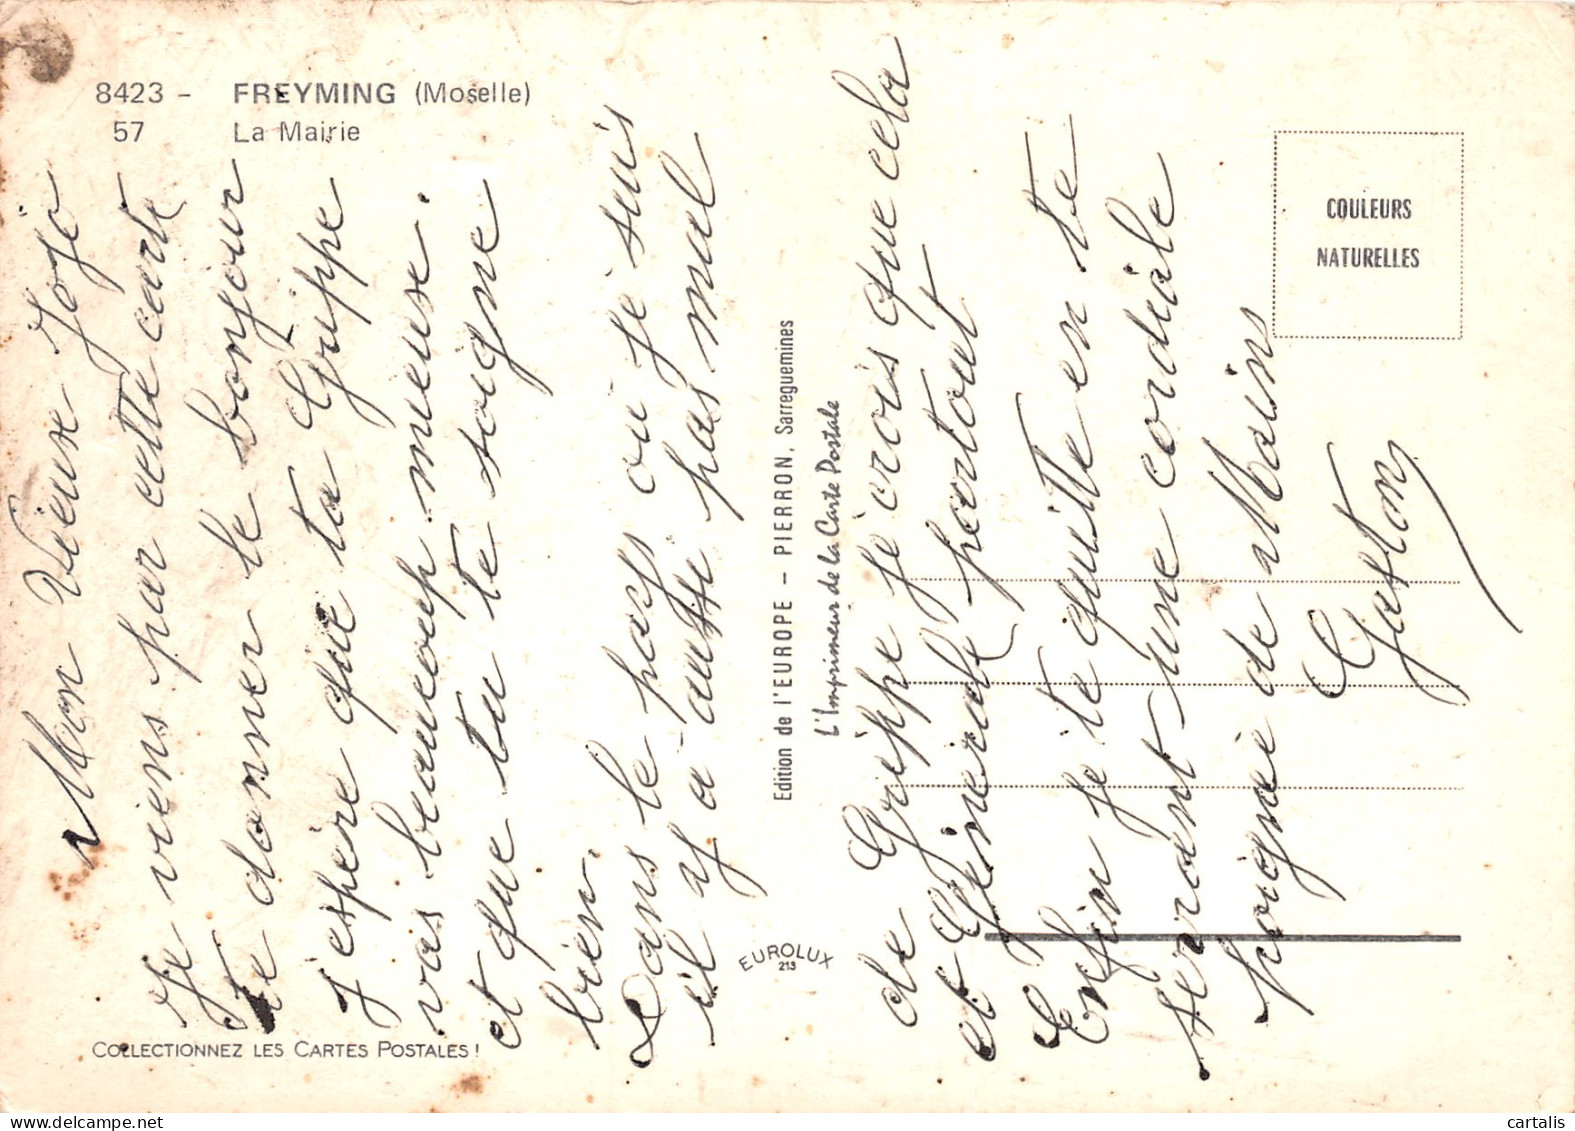 8423 - FREYMING (Moselle)
57 La Mairie
Mon Vieux Jojo
Je viens par cette carte
te donner le bonjour
J'espère que ta Grippe
vas beaucoup mieuse.
et que tu te soigne
bien.
Dans le pays ou je suis
il y a aussi pas mal
de Grippe je crois que cela
et Génerale partout
Enfin je te quitte en te
serrant une cordiale
poignée de Mains
Gaston
Edition de l'EUROPE - PIERRON, Sarreguemines
L'Imprimeur de la Carte Postale
EUROLUX
213
COULEURS
NATURELLES
COLLECTIONNEZ LES CARTES POSTALES !
cartalis delcampe.net